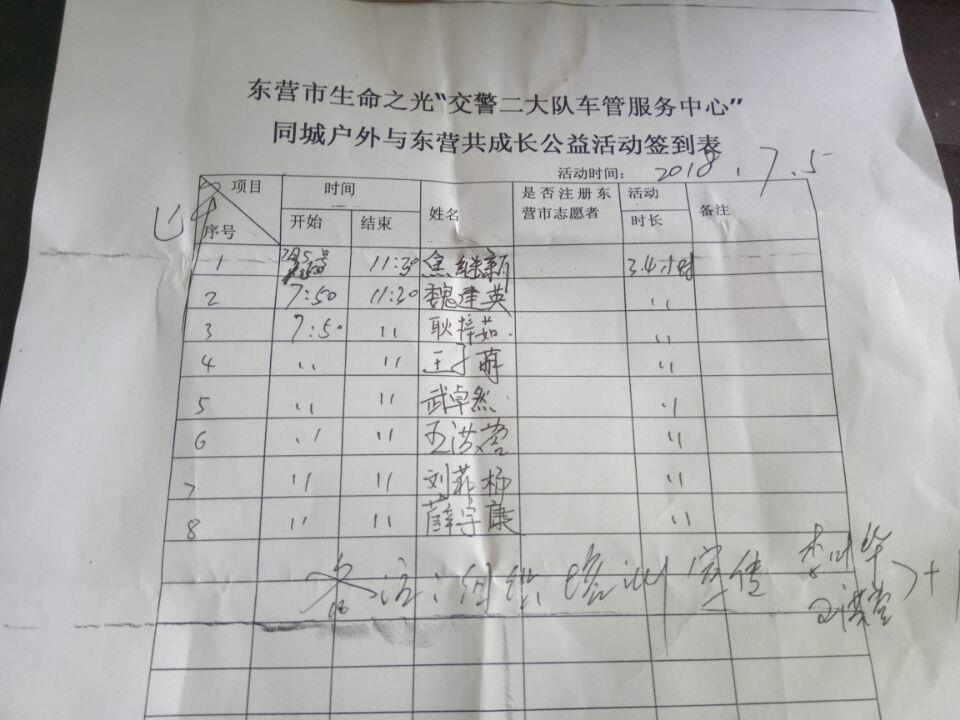 东营市生命之光“交警二大队车管服务中心”
同城户外与东营共成长公益活动签到表
活动时间： 2018.7.5
项目 时间 姓名 是否注册东营市志愿者 活动时长 备注
序号 开始 结束
1 11:30 焦继新 3.4小时
2 7:50 11:30 魏建英 〃
3 7:50 〃 耿梓茹 〃
4 〃 〃 王子萌 〃
5 〃 〃 武卓然 〃
6 〃 〃 〃
7 〃 〃 刘菲杨 〃
8 〃 〃 薛宇康 〃
备注：组织培训宣传